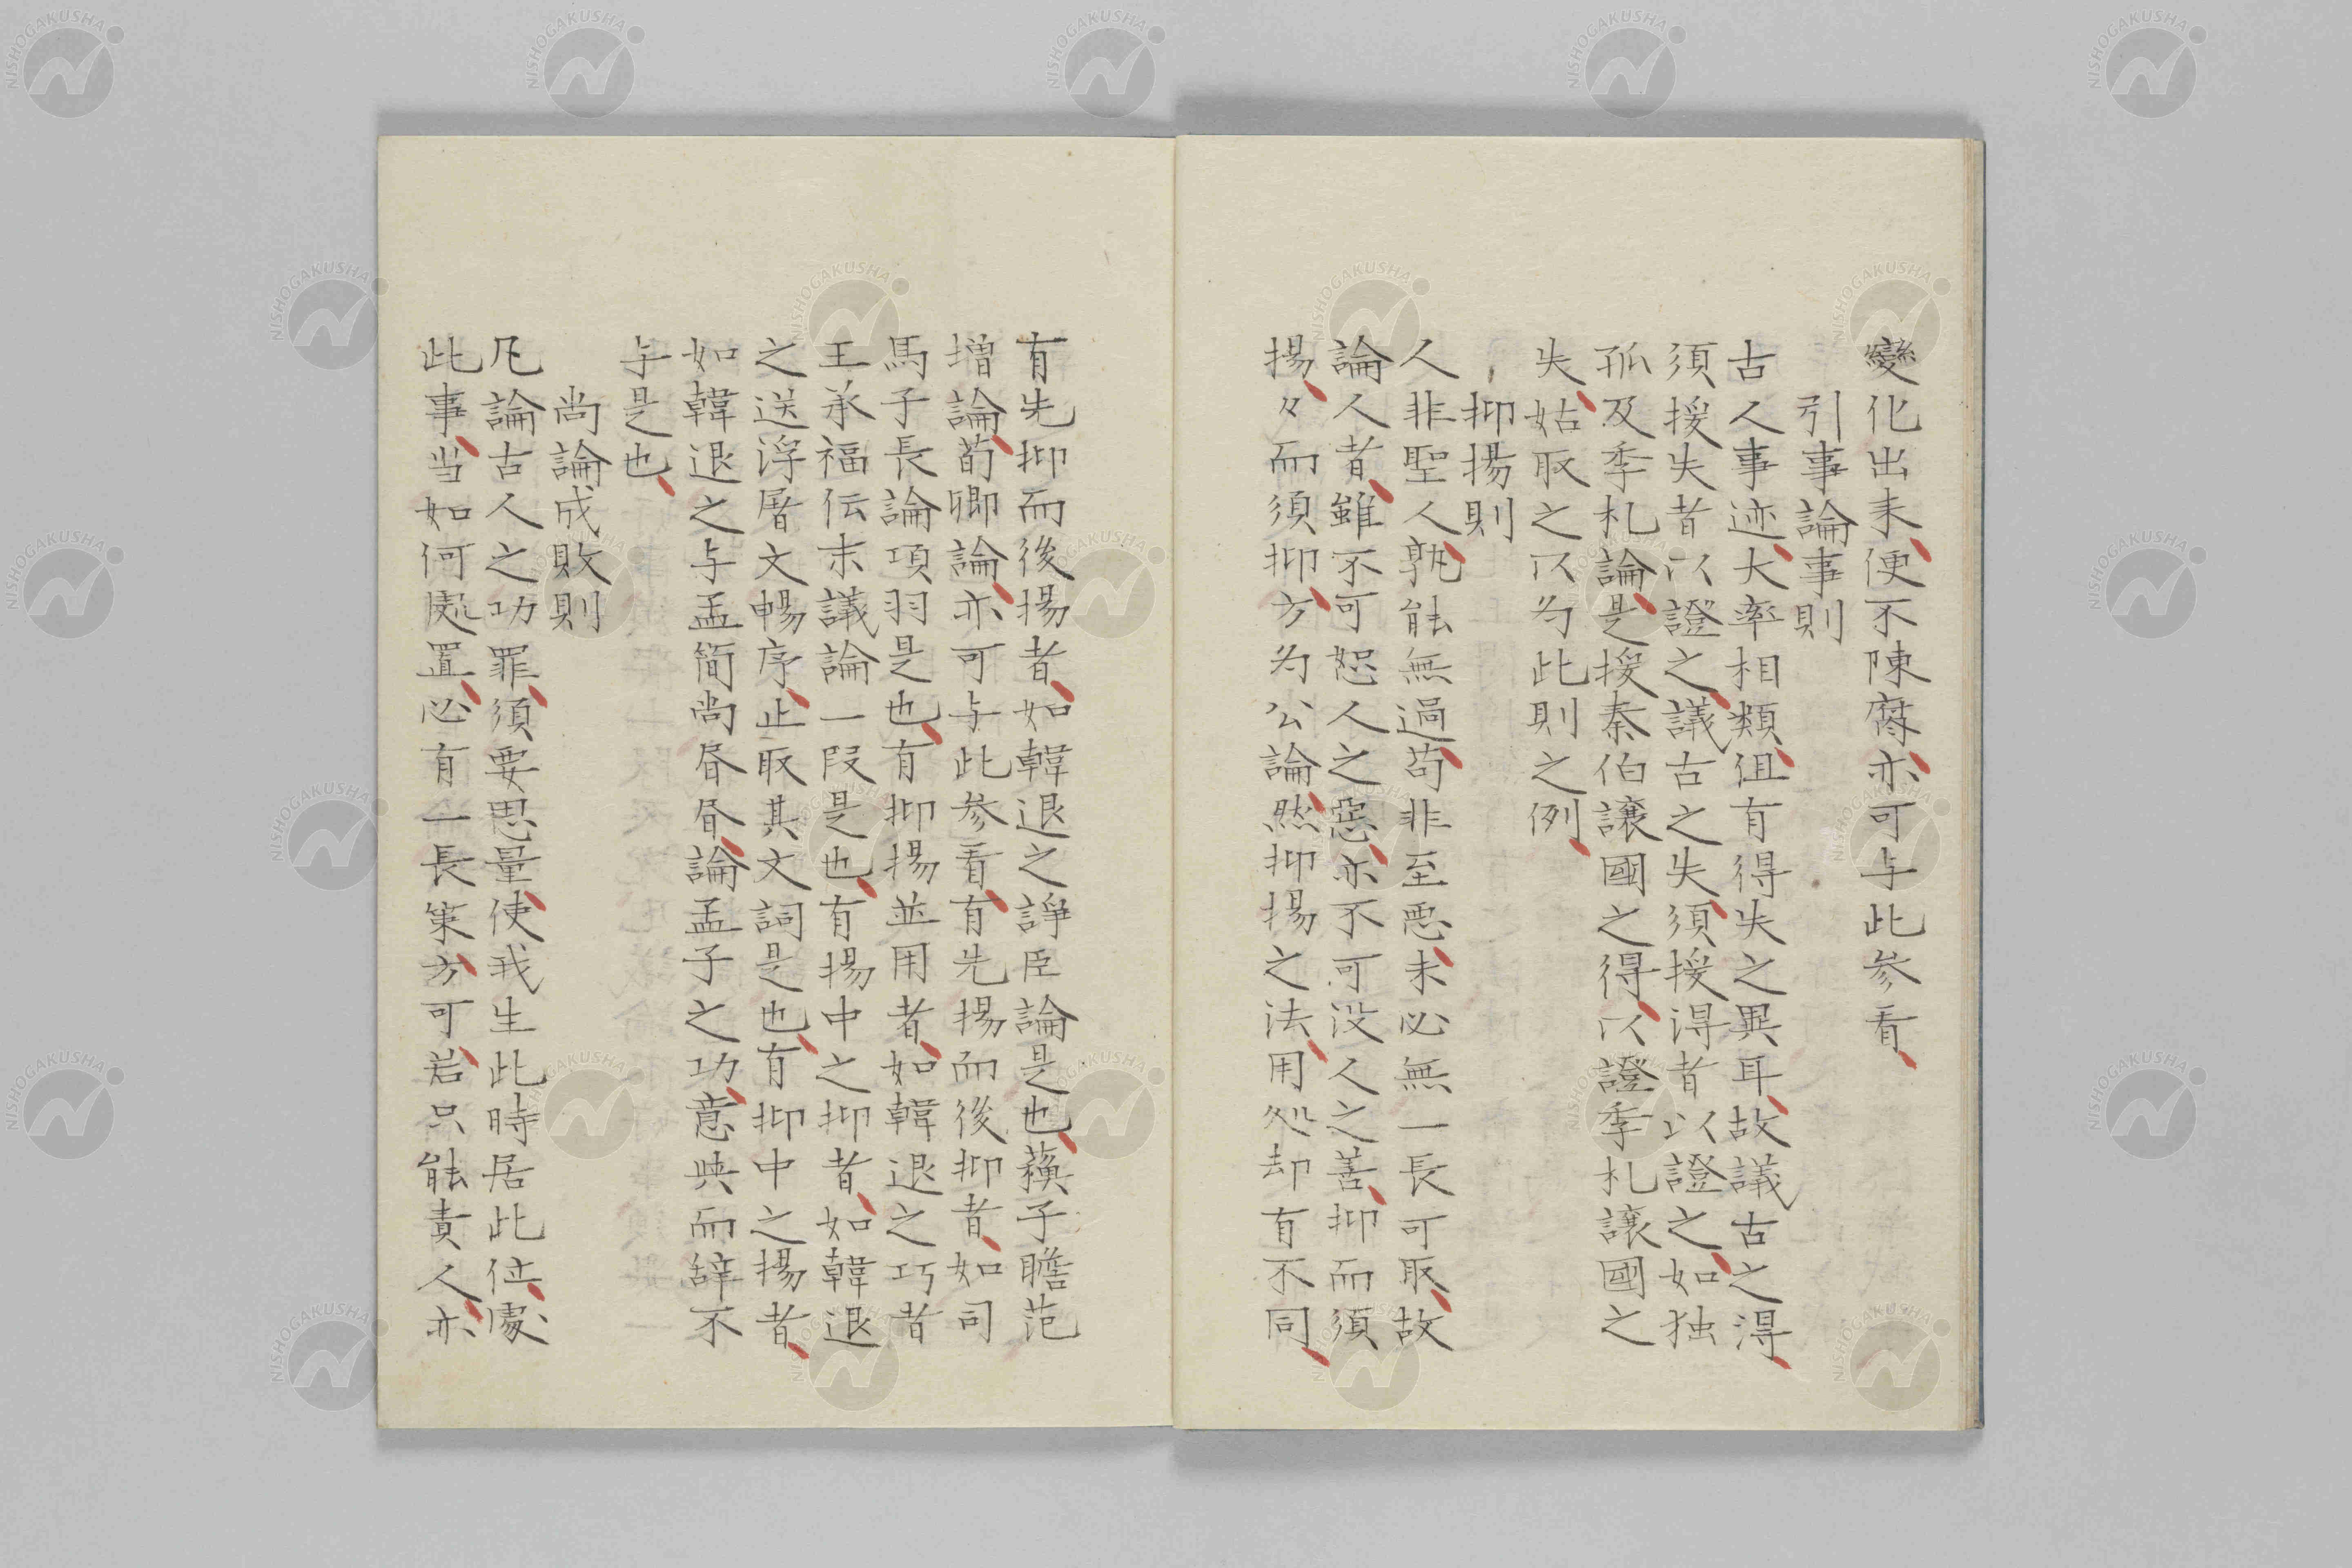 變化出来便不陳腐亦可与此參看
引事論事則
古人事迹大率相類但有得失之異耳故議古之得
須援失者以證之議古之失須援得者以證之如独
孤及季札論是援泰伯讓國之得以證季札讓國之
失姑取之以为此則之例
抑揚則
人非聖人孰能無過苟非至悪未必無一長可取故
論人者雖不可恕人之惡亦不可没人之善抑而須
揚々而須抑方为公論然抑揚之法用処却有不同
有先抑而後揚者如韓退之諍臣論是也蘓子瞻范
増論荀卿論亦可与此參看有先揚而後抑者如司
馬子長論項羽是也有抑揚並用者如韓退之巧者
王承福伝末議論一段是也有揚中之抑者如韓退
之送浮屠文暢序止取其文詞是也有抑中之揚者
如韓退之与孟簡尚書書論孟子之功意典而辞不
与是也
尚論成敗則
凡論古人之功罪須要思量使我生此時居此位處
此事当如何處置必有一長策方可若只能責人亦
NISHOGAKUSHA